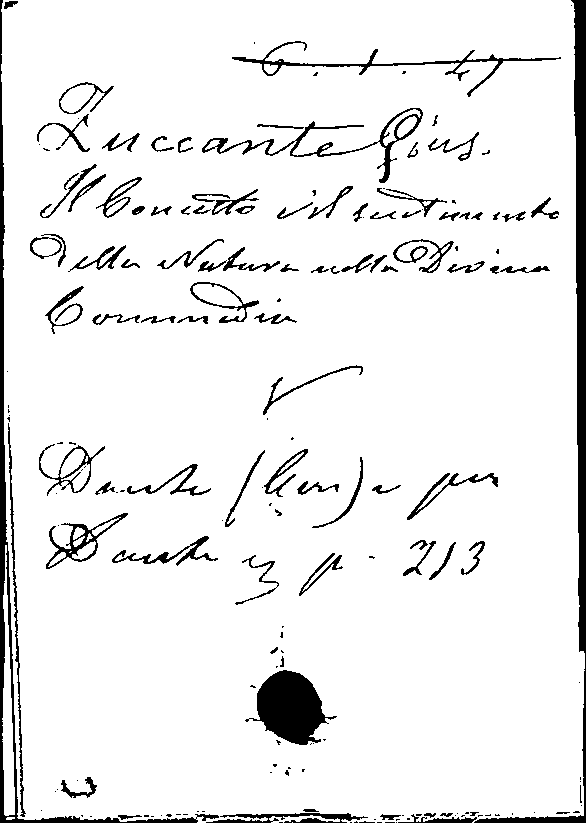 6. 1. 47
Zuccante Gius.
Il Concetto e il sentimento
della Natura nella Divina
Commedia
V
Dante (Con) e per
Dante p. 213